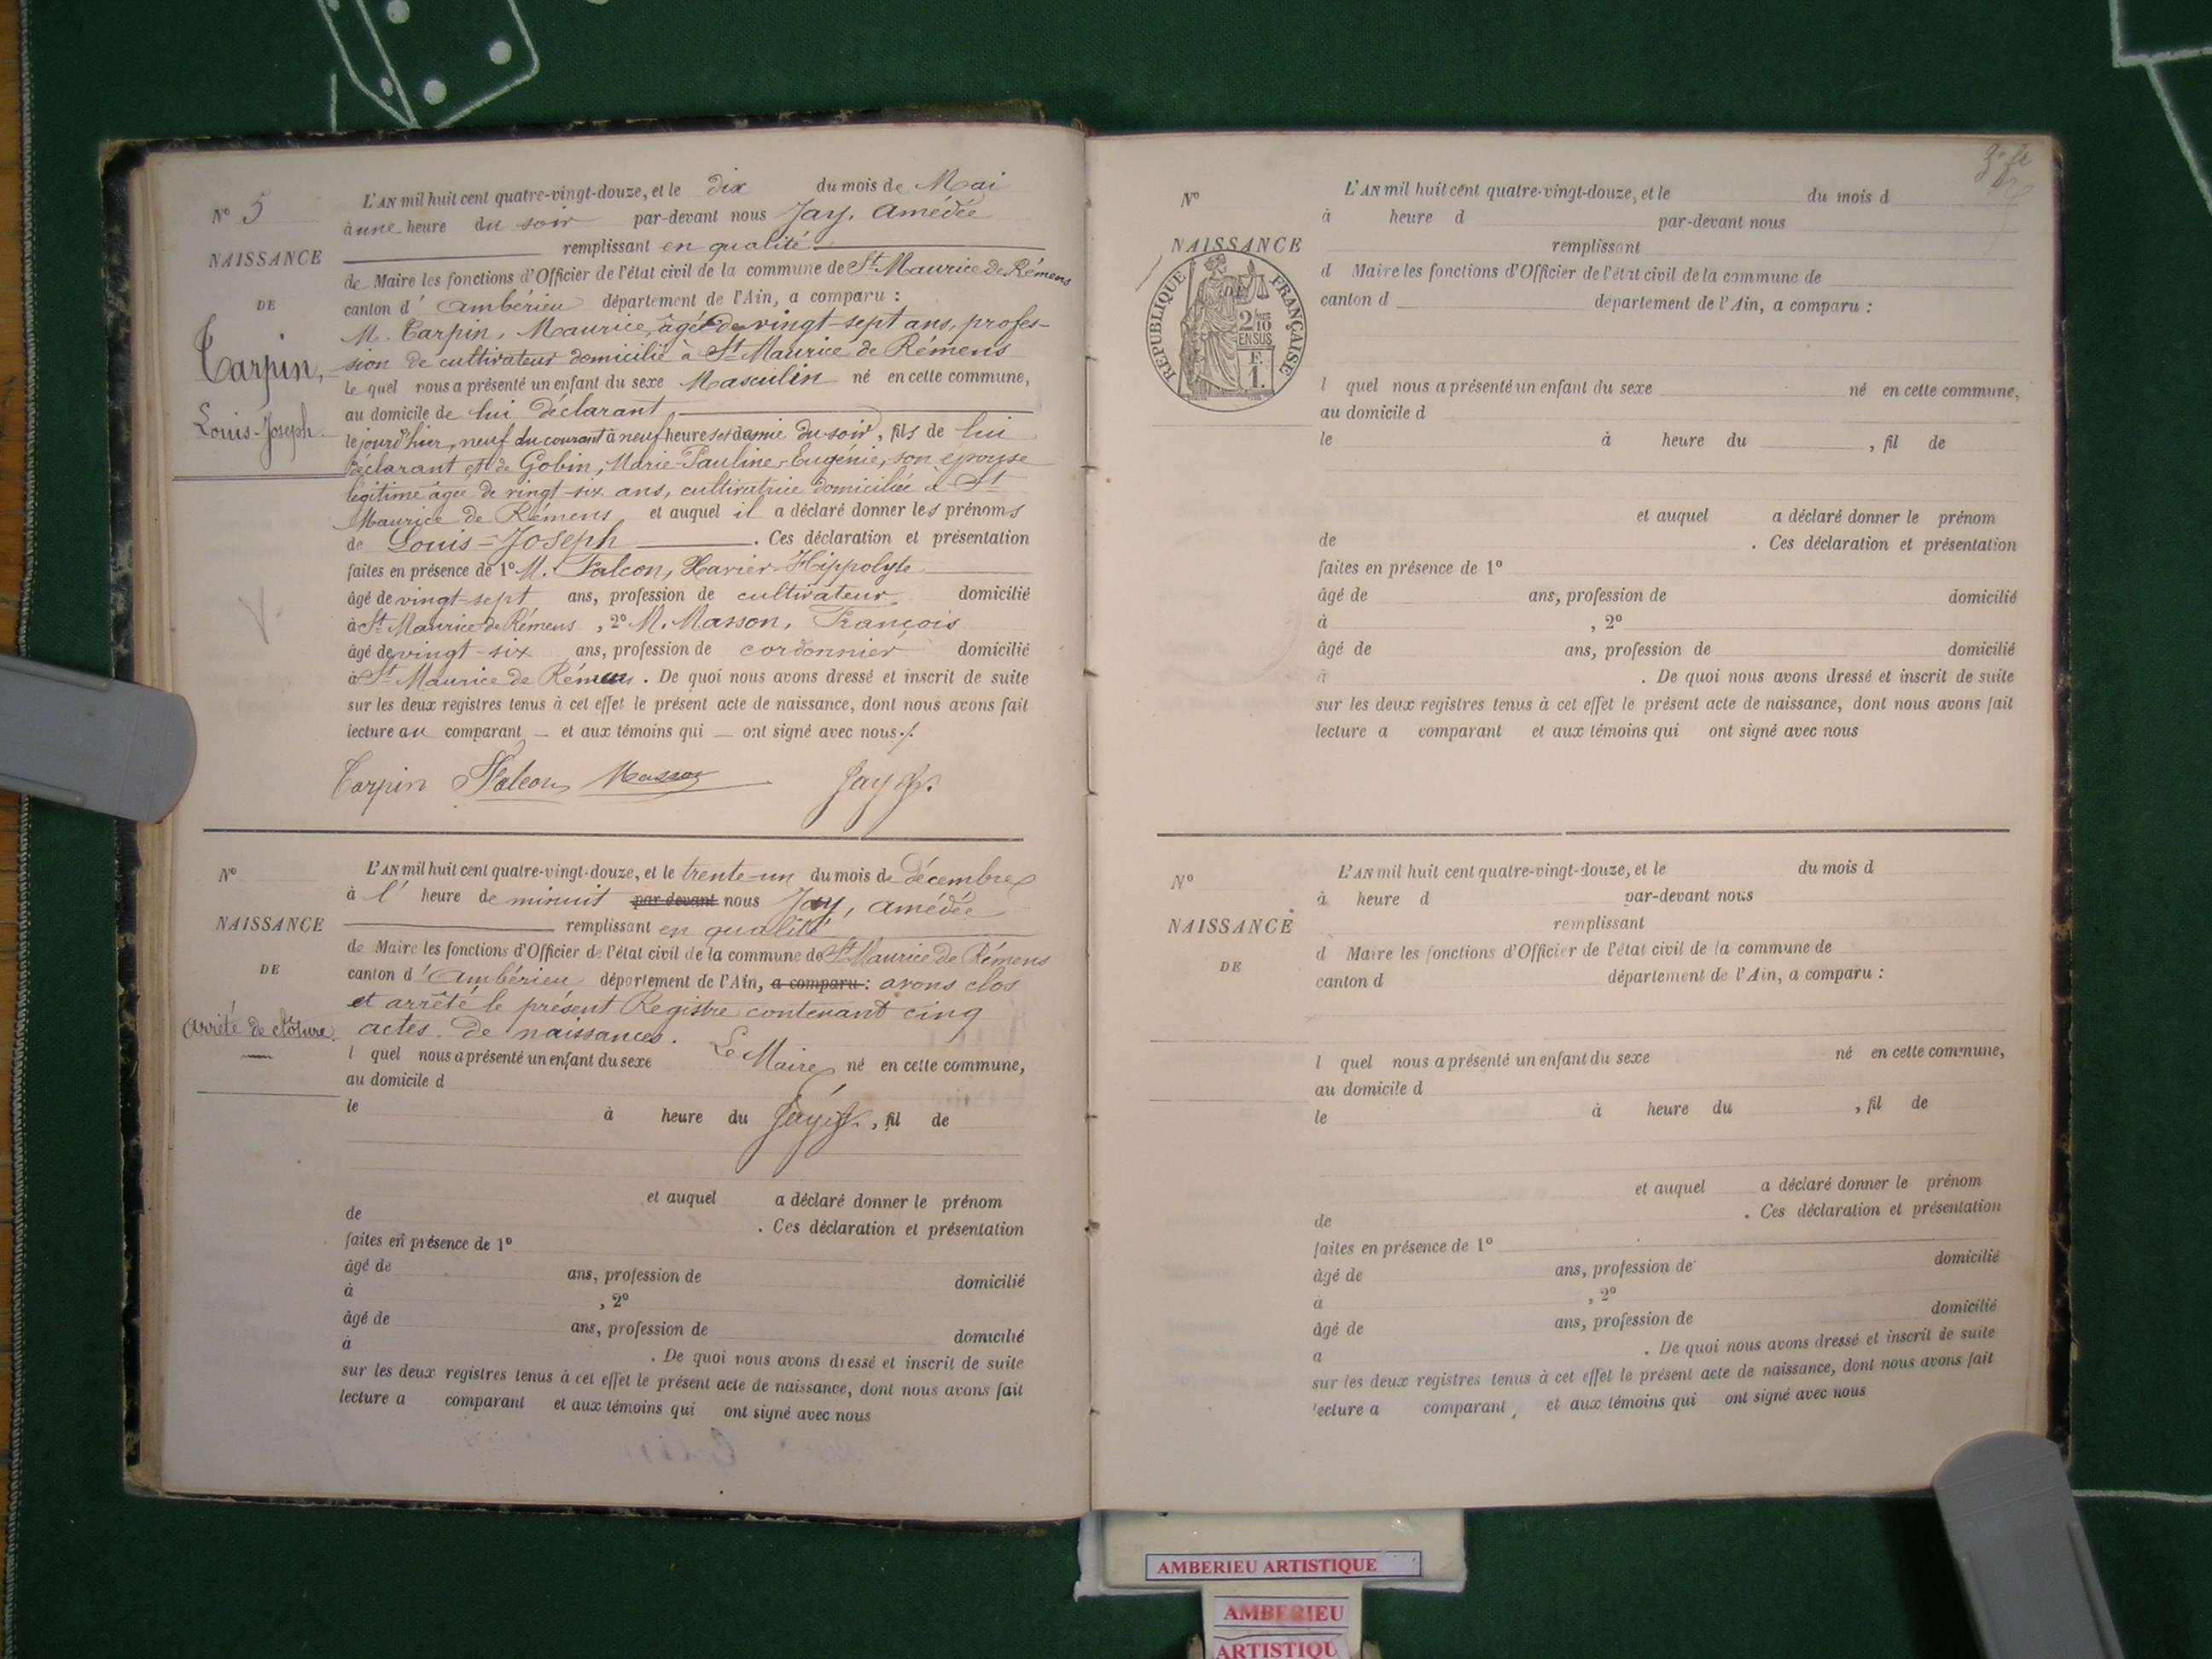 N° 5
NAISSANCE
DE
Carpin,
Louis-Joseph
L'AN mil huit cent quatre-vingt-douze, et le dix du mois de Mai
à une heure du soir par-devant nous Jay, Amédée
remplissant en qualité
de Maire les fonctions d'Officier de l'état civil de la commune de St Maurice de Rémens
canton d'Ambérieu département de l'Ain, a comparu :
M. Carpin, Maurice, âgé de vingt-sept ans, profes-
sion de cultivateur domicilié à St Maurice de Rémens
Le quel nous a présenté un enfant du sexe Masculin né en cette commune,
au domicile de lui déclarant
le jour d'hier, neuf du courant à neuf heures et demie du soir, fils de lui
déclarant et de Gobin, Marie-Pauline-Eugénie, son épouse
légitime âgée de vingt-six ans, cultivatrice domiciliée à St
Maurice de Rémens et auquel il a déclaré donner les prénoms
de Louis-Joseph . Ces déclaration et présentation
faites en présence de 1° M. Falcon, Xavier-Hippolyte
âgé de vingt-sept ans, profession de cultivateur domicilié
à St Maurice de Rémens , 2° M. Masson, François
âgé de vingt-six ans, profession de cordonnier domicilié
à St Maurice de Rémens . De quoi nous avons dressé et inscrit de suite
sur les deux registres tenus à cet effet le présent acte de naissance, dont nous avons fait
lecture au comparant et aux témoins qui ont signé avec nous
Carpin Falcon Masson Jay
N°
NAISSANCE
DE
Arrêté de clôture
L'AN mil huit cent quatre-vingt-douze, et le trente-un du mois de Décembre
à l' heure de minuit par-devant nous Jay, Amédée
remplissant en qualité
de Maire les fonctions d'Officier de l'état civil de la commune de St Maurice de Rémens
canton d'Ambérieu département de l'Ain, a comparu : avons clos
et arrêté le présent Registre contenant cinq
actes de naissances.
Le Maire
l quel nous a présenté un enfant du sexe né en cette commune,
au domicile d
le à heure du Jay , fil de
et auquel a déclaré donner le prénom
de . Ces déclaration et présentation
faites en présence de 1°
âgé de ans, profession de domicilié
à , 2°
âgé de ans, profession de domicilié
à . De quoi nous avons dressé et inscrit de suite
sur les deux registres tenus à cet effet le présent acte de naissance, dont nous avons fait
lecture a comparant et aux témoins qui ont signé avec nous
N°
NAISSANCE
DE
REPUBLIQUE FRANÇAISE
2/10
EN SUS
F.
1.
L'AN mil huit cent quatre-vingt-douze, et le du mois d
à heure d par-devant nous
remplissant
d Maire les fonctions d'Officier de l'état civil de la commune de
canton d département de l'Ain, a comparu :
l quel nous a présenté un enfant du sexe né en cette commune,
au domicile d
le à heure du , fil de
et auquel a déclaré donner le prénom
de . Ces déclaration et présentation
faites en présence de 1°
âgé de ans, profession de domicilié
à , 2°
âgé de ans, profession de domicilié
à . De quoi nous avons dressé et inscrit de suite
sur les deux registres tenus à cet effet le présent acte de naissance, dont nous avons fait
lecture a comparant et aux témoins qui ont signé avec nous
N°
NAISSANCE
DE
L'AN mil huit cent quatre-vingt-douze, et le du mois d
à heure d par-devant nous
remplissant
d Maire les fonctions d'Officier de l'état civil de la commune de
canton d département de l'Ain, a comparu :
l quel nous a présenté un enfant du sexe né en cette commune,
au domicile d
le à heure du , fil de
et auquel a déclaré donner le prénom
de . Ces déclaration et présentation
faites en présence de 1°
âgé de ans, profession de domicilié
à , 2°
âgé de ans, profession de domicilié
à . De quoi nous avons dressé et inscrit de suite
sur les deux registres tenus à cet effet le présent acte de naissance, dont nous avons fait
lecture a comparant et aux témoins qui ont signé avec nous
AMBERIEU ARTISTIQUE
AMBERIEU
ARTISTIQU